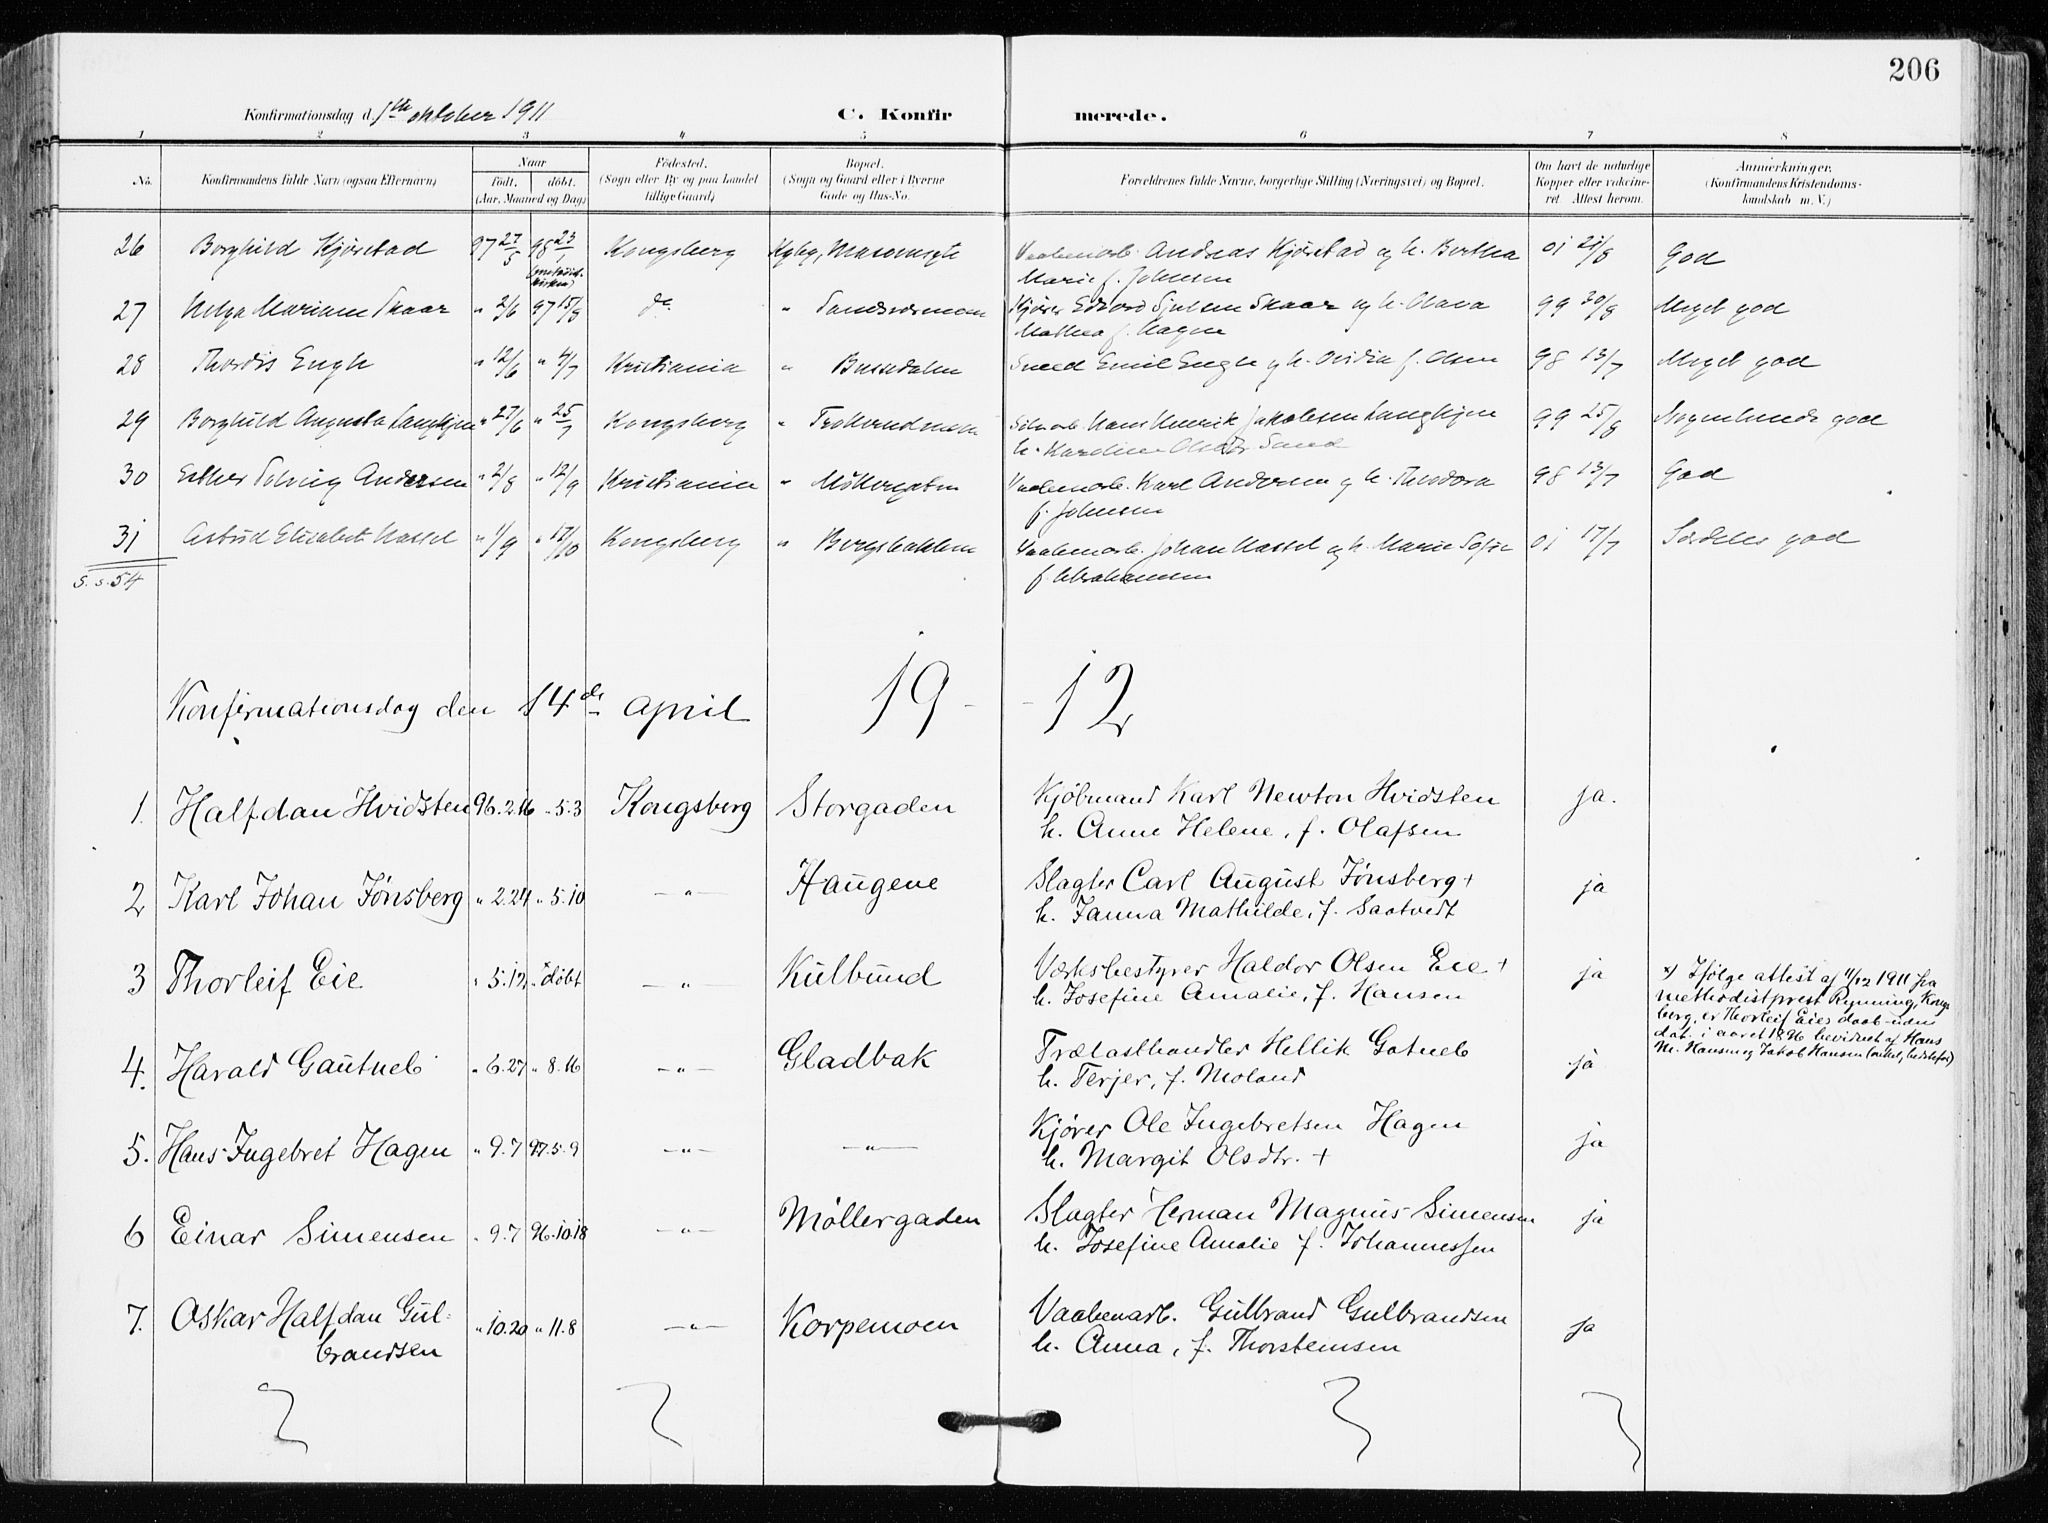 206
Konfirmationsdag d. 1ste oktober 1911 C. Konfirmerede.
1 2 3 4 5 6 7 8
No. Konfirmandens fulde Navn (ogsaa Efternavn) Naar födt. döbt. (Aar, Maaned og Dag) Födested. (Sogn eller By og paa Landet tillige Gaard) Bopæl. (Sogn og Gaard eller i Byerne Gade og Hus-No. Forældrenes fulde Navne, borgerlige Stilling (Næringsvei) og Bopæl. Om havt de naturlige Kopper eller vakcineret. Attest herom. Anmærkninger. (Konfirmandens Kristendomskundskab m. V.)
26 Borghild Kjørstad 97 27/5 98 23/1 Kongsberg Andreas Kjørstad og h. Berthea 01 21/8 God
Marie f. Johnsen
27 Helga Mariane Skaar " 2/6 97 15/8 do " Kjører Edvard Skaar og h. Olava 99 30/8 Meget god
Mathea f. Hagen
28 Thordis Engh " 12/6 " 4/7 Kristiania " Bussedalen Smed Emil Engh og h. Ovidia f. Olsen 98 13/7 Meget god
29 Borghild Augusta Langkjen " 27/6 " 25/7 Kongsberg " Hans Henrik Jakobsen Langkjen 99 25/8 Nogenlunde god
h. Karoline
30 Esther Solveig Andersen " 2/8 " 12/9 Kristiania " Möllergaten Vaabenarb. Karl Andersen og h. Theodora 98 13/7 God
f. Johnsen
31 Astrid Elisabeth Hassel " 1/9 " 17/10 Kongsberg " Bergsbakken Vaabenarb. Johan Hassel og h. Marie Sofie 01 17/7 Særdeles god
f. Abrahamsen
S. s. 54
Konfirmationsdag den 14de april 19 - - 12
1. Halfdan Hvidsten 96.2.16 " 5.3 Kongsberg Storgaden Kjöbmand Karl Newton Hvidsten ja.
h. Anne Helene, f. Olafsen
2 Karl Johan Jönsberg " 2.24 " 5.10 —"— Haugene Slagter Carl August Jönsberg + ja
h. Janna Mathilde, f. Saatvedt
3 Thorleif Eie " 5.12 " x döbt —"— Kulbund Værksbestyrer Haldor Olsen Eie + ja
h. Josefine Amalie, f. Hansen
x) Ifølge attest af 11/12 1911 fra
methodistprest Rynning, Kongs
berg, er Thorleif Eies daab uden
dat. i aaret 1896 bevidnet af Hans
M. Hansen og Jakob Hansen (onkel, bedstefar)
4. Harald Gautneb " 6.27 " 8.16 —"— Gladbak Trælasthandler Hellik Gotneb ja
h. Terjer, f. Moland
5. Hans Ingebret Hagen " 9.7 97.5.9 —"— —"— Kjører Ole Ingebretsen Hagen ja
h. Margit Olsdtr. +
6 Einar Simensen " 9.7 96.10.18 —"— Møllergaden Slagter Herman Magnus Simensen ja
h. Josefine Amalie f. Johannessen
7. Oskar Halfdan Gul- " 10.20 " 11.8 —"— Korpemoen Vaabenarb. Gulbrand Gulbrandsen ja
brandsen h. Anna, f. Thorstensen